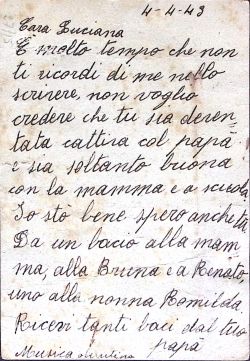 4-4-43
Cara Luciana
È molto tempo che non
ti ricordi di me nello
scrivere, non voglio
credere che tu sia deven
tata cattiva col papà
e sia soltanto buona
con la mamma e a scuola
Io sto bene spero anche tu
Da un bacio alla mam
ma, alla Bruna e a Renato,
uno alla nonna Romilda
Ricevi tanti baci dal tuo
papà
Musica